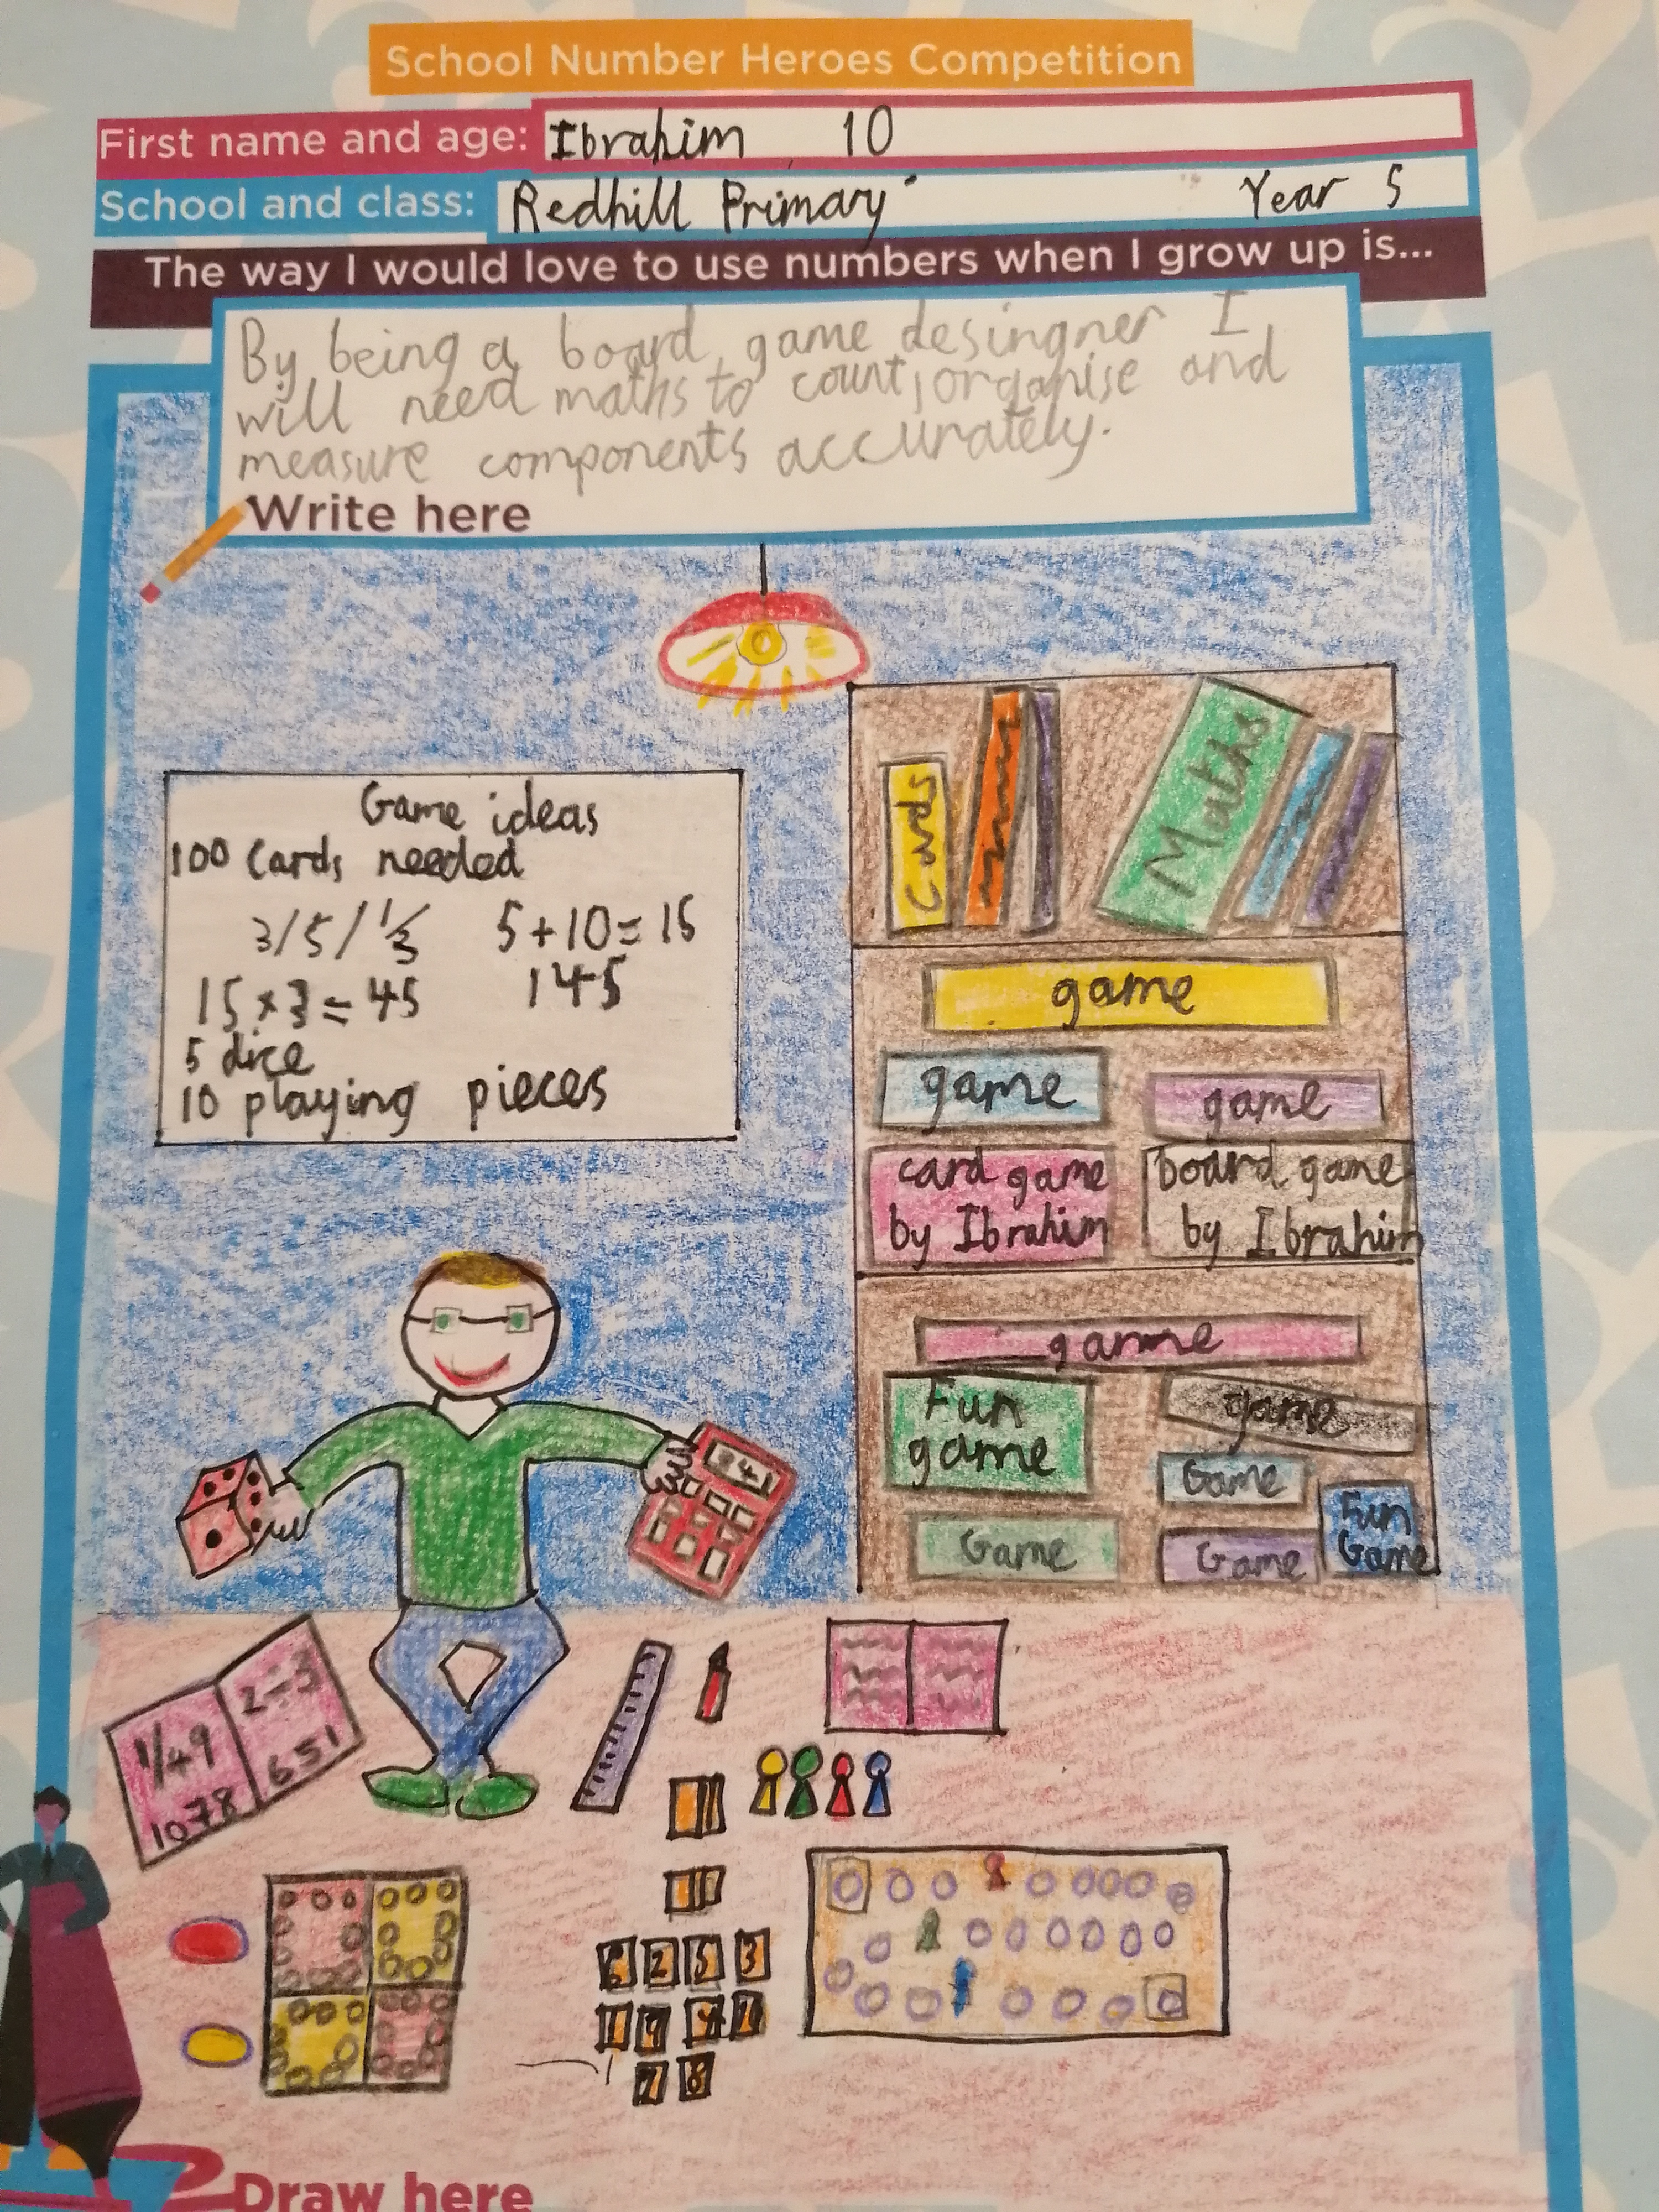 School Number Heroes Competition
First name and age: Ibrahim 10
School and class: Redhill Primary Year 5
The way I would love to use numbers when I grow up is...
By being a board game desingner I
will need maths to count, organise and
measure components accurately.
Write here
Game ideas
100 Cards needed
3/5/ 1/3 5+10=15
15×3=45 145
5 dice
10 playing pieces
Cards
Maths
game
game
game
card game
by Ibrahim
board game
by Ibrahim
game
Fun
game
game
Game
Game
Game
Fun
Game
1/49
1078
2÷3
651
6 2 5 3
1 9
7 8
Draw here